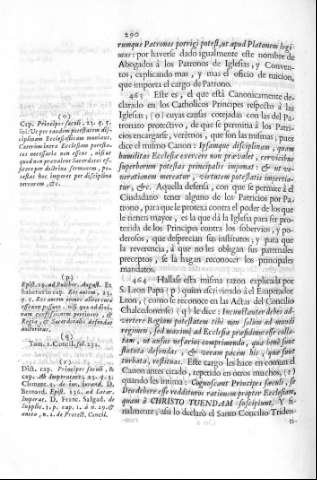 290
rumque Patronos porrigi potest, ut apud Platonem legimus: por haverse dado igualmente este nombre de
Abogados à los Patronos de Iglesias, y Conventos, explicando mas, y mas el oficio de
que importa el cargo de Patrono.
463 Este es, el que està Canonicamente declarado en los Catholicos Principes respecto à las
Iglesias, (o) cuyas causas cotejadas con las del Patronato protectivo, de que se permita à los Patricios encargarse, veremos, que son las mismas; pues
dice el mismo Canon: Ipsamque disciplinam, quam
humilitas Ecclesiæ exercere non prævalet, cervicibus
superborum potestas principalis imponat: & ut venerationem mereatur, virtutem potestatis impertiatur, &c. Aquella defensa, con que se permite à el
Ciudadano tener alguno de los Patricios por Patrono, para que le proteja contra el poder de los que
le tienen mayor, es la que dà la Iglesia para ser protegida de los Principes contra los sobervios, y poderosos, que desprecian sus institutos, y para que
la reverencia, à que no les obligan sus paternales
preceptos, se la hagan reconocer los principales
mandatos.
464 Hallase esta misma razon explicada por
S. Leon Papa (p) quando escriviendo à el Emperador
Leon, (como se reconoce en las Actas del Concilio
Chalcedonense) (q) le dice: Incunctanter debes advertere Regiam potestatem tibi non solum ad mundi
regimen, sed maximè ad Ecclesiæ præsidium esse collatam, ut ausus nefarios comprimendo, quæ benè sunt
statuta defendas, & veram pacem his, quæ sunt
turbata, restituas. Este cargo les hace en comun el
Canon antes citado, repetido en otros muchos, (r)
quando les intima: Cognoscant Principes sæculi, se
Deo debere esse reddituros rationem propter Ecclesiam,
quam à CHRISTO TUENDAM suscipiunt. Y finalmente, assi lo declarò el Santo Concilio Triden-
(o)
Cap. Principes sæculi. 23. q. 5.
ibi: Ut per eandem potestatem disciplinam Ecclesiasticam muniant.
Cæterùm intra Ecclesiam potestates necessariæ non essent, nisi ut
quod non prævalent Sacerdotes efficere per doctrinæ sermonem, potestas hoc imperet per disciplinæ
terrorem, &c.
(p)
(q)
Tom. 1. Concil. fol. 232.
(r)
Dict. cap. Principes sæculi, &